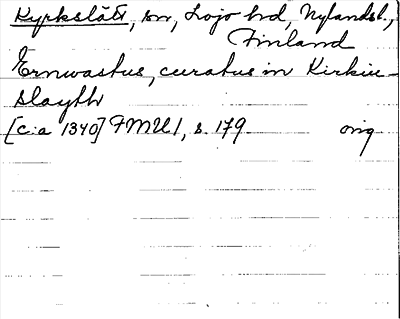 Kyrkslätt, sn, Lojo hd, Nylandsl.,
Finland
Ernwastus, curatus in Kirkiu-
slayth
[c:a 1340] FMU 1, s. 179 orig